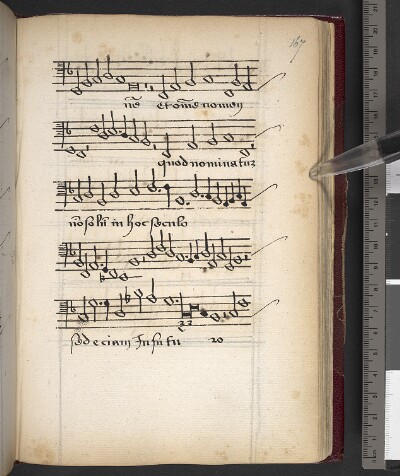 167
et om̄e nomen
quod nominatur
nō solū in hoc seculo
sed eciam In futu ro